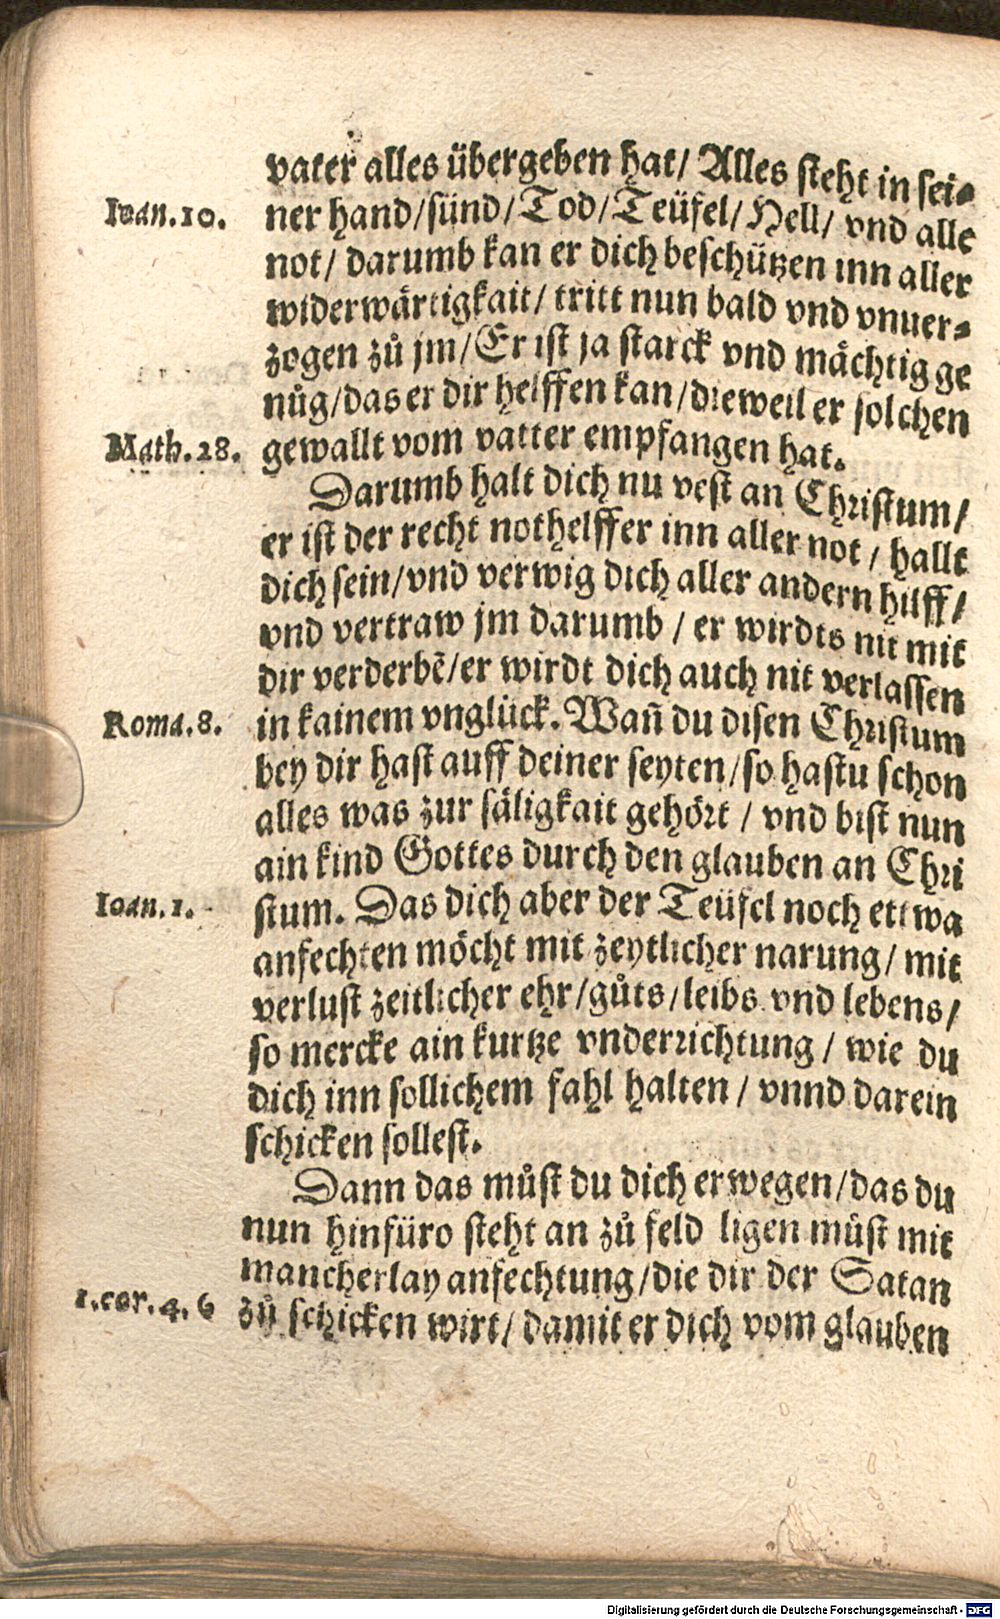 vater alles übergeben hat/ Alles steht in sei⸗
Ioan.10. ner hand/sünd/Tod/Teüfel/Hell/ vnd alle
not/ darumb kan er dich beschützen inn aller
widerwärtigkait/ tritt nun bald vnd vnuer⸗
zogen zů jm/Er ist ja starck vnd mächtig ge
nůg/das er dir helffen kan/dieweil er solchen
Math.28. gewallt vom vatter empfangen hat.
Darumb halt dich nu vest an Christum/
er ist der recht nothelffer inn aller not/ hallt
dich sein/vnd verwig dich aller andern hilff/
vnd vertraw jm darumb/ er wirdts nit mit
dir verderbē/er wirdt dich auch nit verlassen
Roma.8. in kainem vnglück. Wañ du disen Christum
bey dir hast auff deiner seyten/so hastu schon
alles was zur säligkait gehört/ vnd bist nun
ain kind Gottes durch den glauben an Chri
Ioan.1. stum. Das dich aber der Teüfel noch ettwa
anfechten möcht mit zeytlicher narung/ mit
verlust zeitlicher ehr/gůts/leibs vnd lebens/
so mercke ain kurtze vnderrichtung/ wie du
dich inn sollichem fahl halten/ vnnd darein
schicken sollest.
Dann das můst du dich erwegen/das du
nun hinfüro steht an zů feld ligen můst mit
mancherlay anfechtung/die dir der Satan
1.cor.4.6 zů schicken wirt/ damit er dich vom glauben
Digitalisierung gefördert durch die Deutsche Forschungsgemeinschaft - DFG